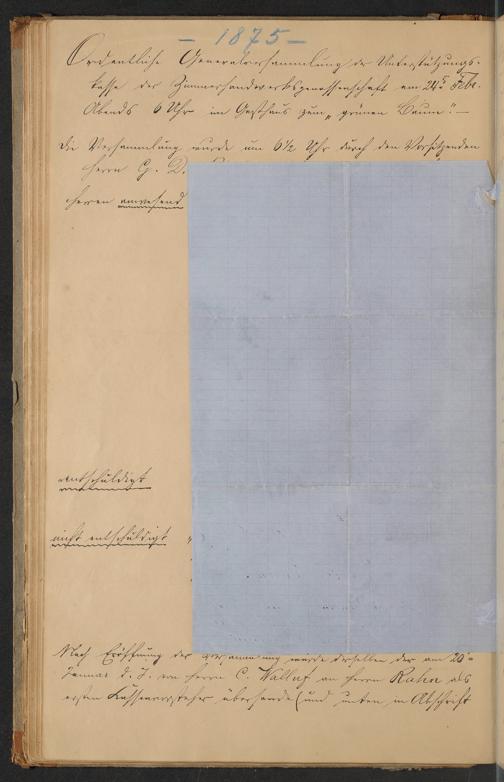 – 1875 –
Ordentliche Generalversammlung der Unterstützungs-
kasse der Zimmerhandwerksgenossenschaft am 24t Febr.
Abends 6 Uhr im Gasthaus zum „grünen Baume“. –
Die Versammlung wurde um 6½ Uhr durch den Vorsitzenden
Herrn G. D.
Herren anwesend
entschuldigt
nicht entschuldigt "
Nach Eröffnung der Versammlung wurde derselben der am 20t
Januar d. J. von Herrn C. Walluf an Herrn Rahn als
ersten Kassenvorsteher übersende (und unten in Abschrift